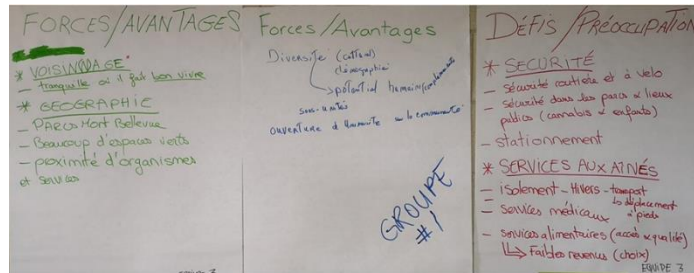 FORCES/AVANTAGES
* VOISINAGE
— tranquille où il fait bon vivre
* GEOGRAPHIE
— PARCS Mont Bellevue
— Beaucoup d'espaces verts
— proximité d'organismes
et services
Forces/Avantages
Diversité (culturel)
démographie
potentiel humain
sous-unités
ouverture d'humanité
GROUPE
#1
DÉFIS/PRÉOCCUPATION
* SECURITÉ
— sécurité routière et à vélo
— sécurité dans les parcs & lieux
publics (cannabis & enfants)
— stationnement
* SERVICES AUX AÎNÉS
— isolement - Hivers - transport
↳ déplacement
à pieds
— services médicaux
— services alimentaires (accès & qualité)
↳ Faibles revenus (choix)
EQUIPE 3